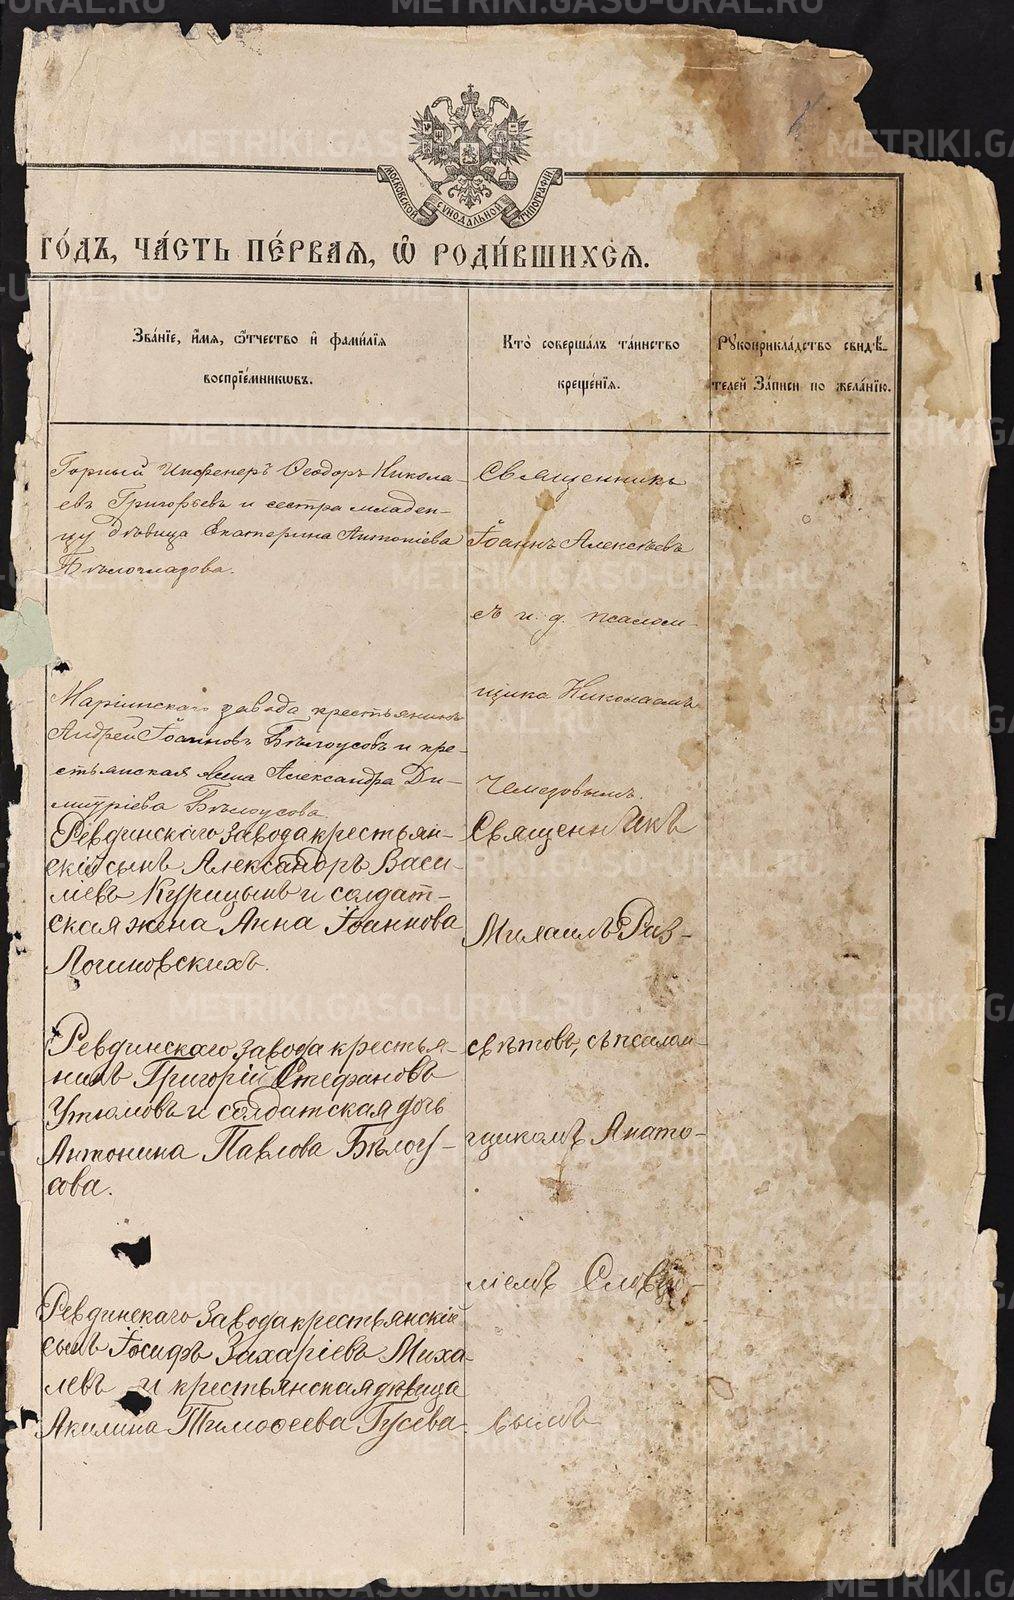 МОСКОВСКОЙ СѴНОДАЛЬНОЙ ТИПОГРАФІИ
ГО́ДЪ, ЧА́СТЬ ПЕ́РВАЯ, Ѽ РОДИ́ВШИХСЯ.
Зва́нїе, и҆́мя, ѻ҆́тчество и҆ фами́лїя
воспрїе́мникѡвъ.
Кто̀ соверша́лъ та́инство
креще́нїя.
Рꙋкоприкла́дство свидѣ́-
телей За́писи по жела́нїю.
Горный Инженеръ Ѳеодоръ Никола-
евъ Григорьевъ и сестра младен-
цу дѣвица Екатерина Антонiева
Священникъ
Іоаннъ Алексѣевъ
съ и. д. псалом-
щика Николаемъ
Марiинскаго завода крестьянинъ
Андрей Іоанновъ Бѣлоусовъ и кре-
стьянская жена Александра Ди-
митрiева Бѣлоусова.
Ревдинскаго завода крестьян-
скiй сынъ Александръ Васи-
лiевъ Курицынъ и солдат-
ская жена Анна Іоаннова
Логиновскихъ.
Священникъ
Михаилъ Раз-
Ревдинскаго завода крестья-
нинъ Григорiй Стефановъ
Утюмовъ и солдатская дочь
Антонина Павлова Бѣлоу-
сова.
свѣтовъ, съ псалом-
щикомъ Анато-
лiемъ Словцо-
вымъ
Ревдинскаго завода крестьянскiй
сынъ Іосифъ Захарiевъ Миха-
левъ и крестьянская дѣвица
Акилина Тимоѳеева Гусева.
METRIKI.GASO-URAL.RU